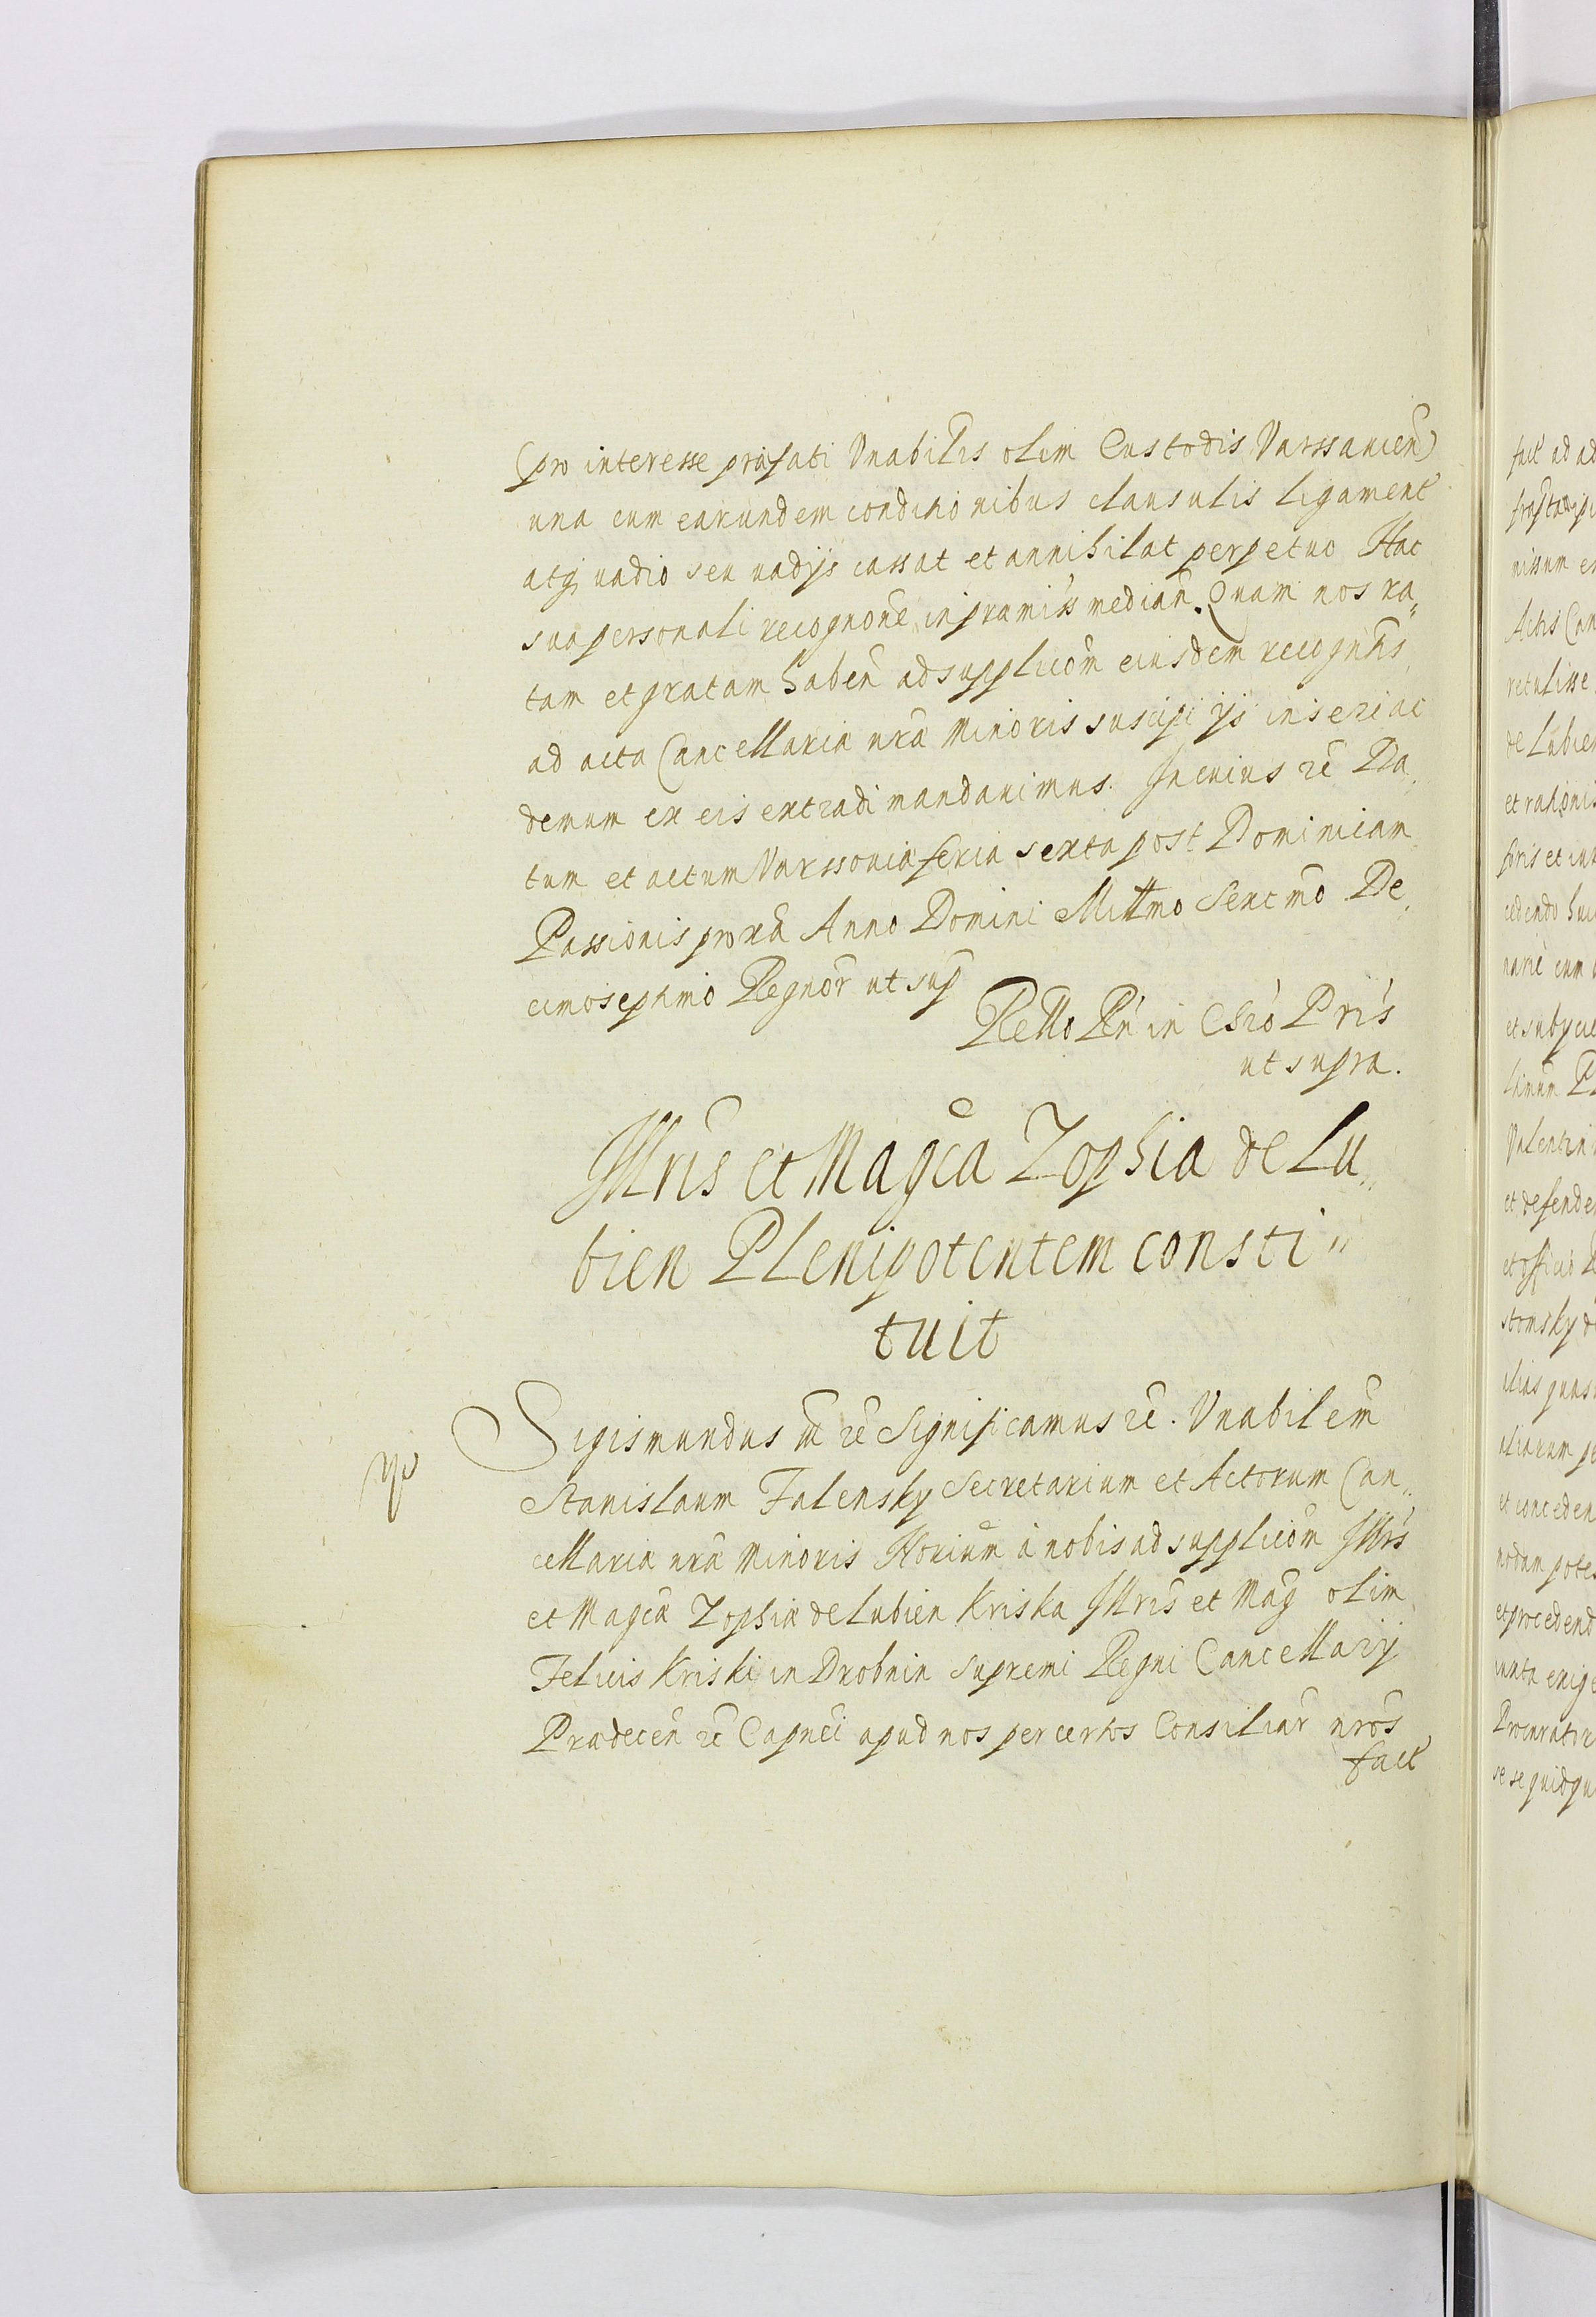 (pro interesse præfati Vnabilis olim Custodis Varssauien)
una cum earundem conditionibus clausulis ligament
atq, vadio seu vadijs cassat et annihilat perpetuo Hac
sua personali recognone in præmiss median. Quam nos ra„
tam et gratam haben ad supplicom eiusdem recognitis
ad acta Cancellariæ nræ Minoris suscipi ijs inseri ac
demum ex eis extradi mandauimus. In cuius rē Da„
tum et actum Varssouiæ feria sexta post Dominicam
Passionis proxa Anno Domini Millmo Sexcmo De„
cimoseptimo Regnor ut sup
Rello Rn in Chrō Pris
ut supra.
Illris et Magca Zophia de Lu„
bien Plenipotentem consti„
tuit
Sigismundus III rē Significamus rē. Vnabilem
Stanislaum Falensky Secretarium et Actorum Can„
cellariæ nræ Minoris Notrium à nobis ad supplicom Illris
et Magcæ Zophiæ de Lubien Kriska Illris et Mag olim
Felicis Kriski in Drobnin Supremi Regni Cancellarij
Prædecen rē Captnei apud nos per certos Consiliar nros
fact